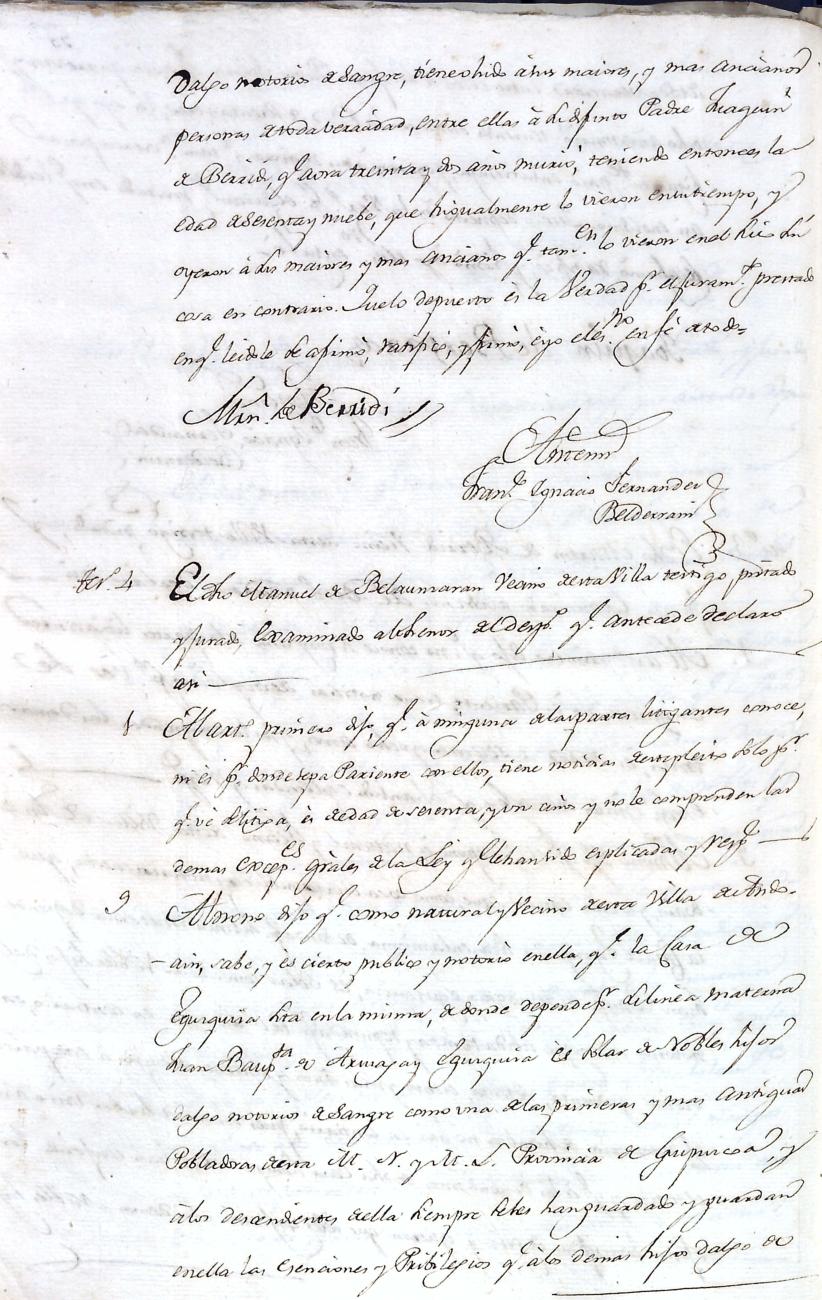 dalgo notorio de Sangre, tiene ohido à sus maiores, y mas ancianos
personas de toda veracidad, entre ellas à su difunto Padre Juaquin
de Berridi, q.e aora treinta y dos años murió, teniendo entonces la
edad de sesenta y nuebe, que higualmente lo vieron en su tiempo, y
oyeron à sus maiores y mas ancianos q.e tam.en lo vieron en el suio sin
cosa en contrario. Que lo depuesto es la Verdad p.r el juram.to prestado
en q.e leidole se afirmó, ratificó, y firmó, è yo el es.no en fè de todo=
Mrn. de Berridi
Ante mi
Fran.co Ignacio Fernandez
Belderrain
tes.o 4 El dho Manuel de Belaunzaran Vecino de esta Villa testigo, pñtado
y jurado, Examinado al thenor del Desp.o q.e antecede declaró
asi
1 Al art.o primero dijo, q.e à ninguna de las partes litigantes conoce,
ni es p.r donde sepa Pariente con ellos, tiene noticias de este pleito solo p.r
q.e vè se litiga, es de edad de sesenta, y un años y no le comprenden las
demas excep.es grâles de la Ley q.e le han sido esplicadas y resp.de
9 Al nono dijo q.e como natural y Vecino de esta Villa de Ando-
ain, sabe, y es cierto publico y notorio en ella, q.e la Casa de
Eguzquiza sita en la misma, de donde depende p.r su linea materna
Juan Baup.ta de Aruaga y Eguzquiza es solar de Nobles hijos
dalgo notorios de Sangre como una de las primeras y mas antiguas
Pobladoras de esta M. N. y M. L. Provincia de Guipuzcoa, y
à los descendientes de ella siempre se les han guardado y guardan
en ella las esenciones y Pribilegios q.e à los demas hijos dalgo de